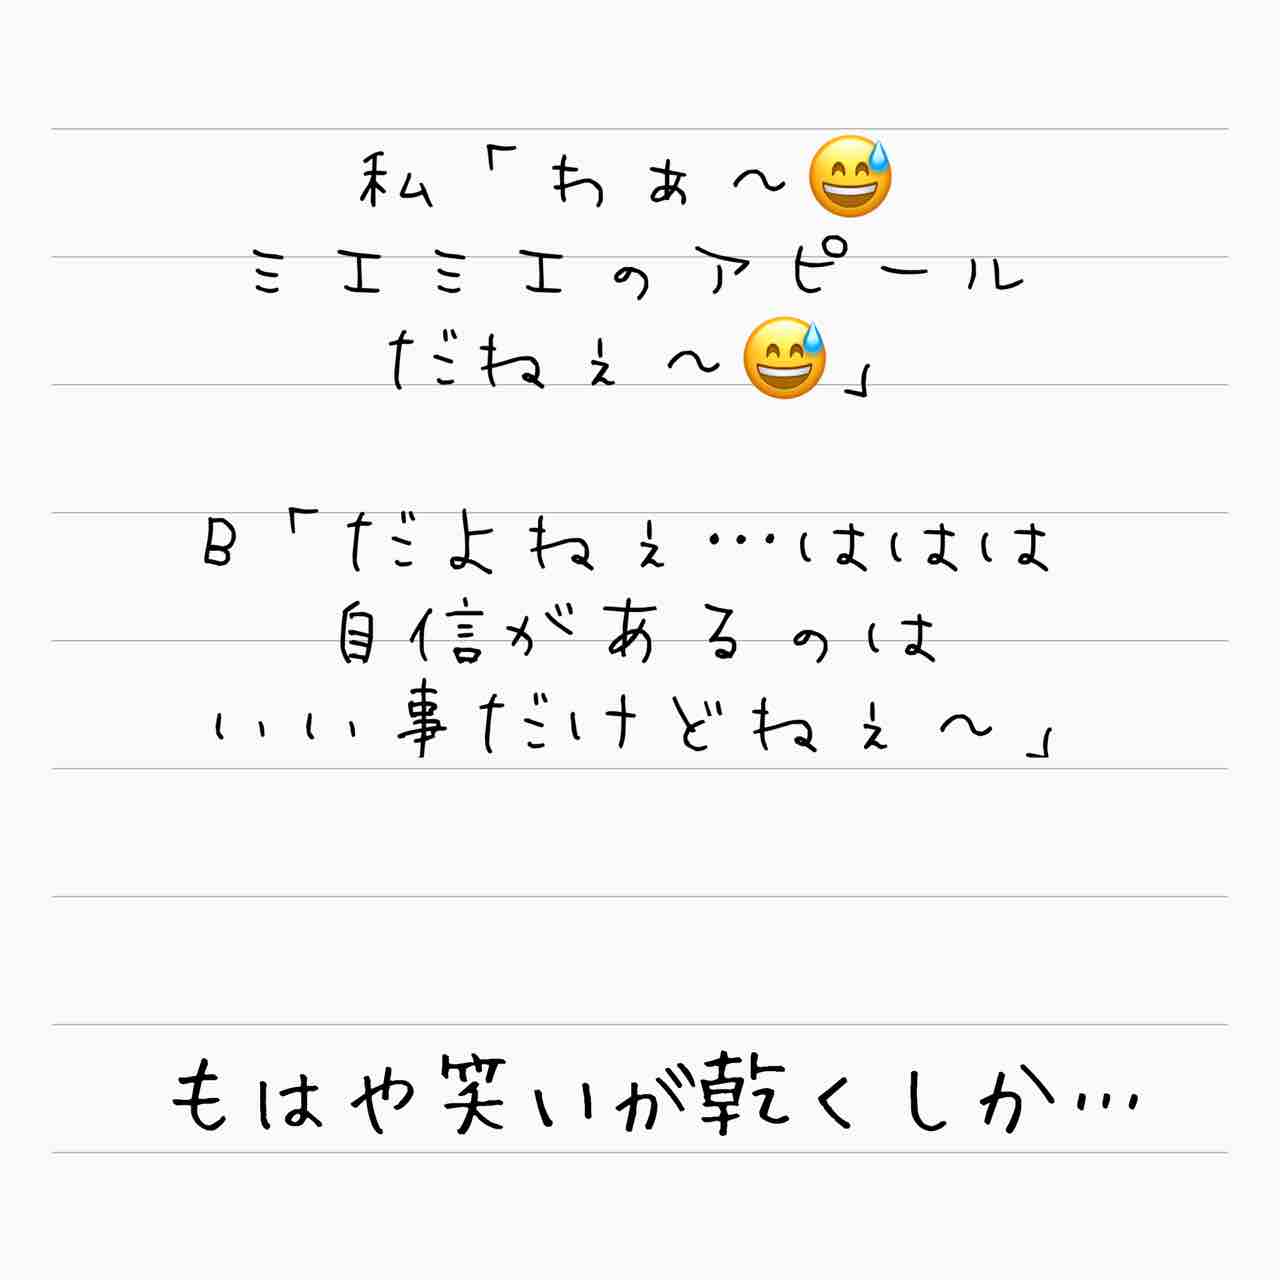 私「わぁ〜😅
ミエミエのアピール
だねぇ〜😅」
B「だよねぇ…ははは
自信があるのは
いい事だけどねぇ〜」
もはや笑いが乾くしか…